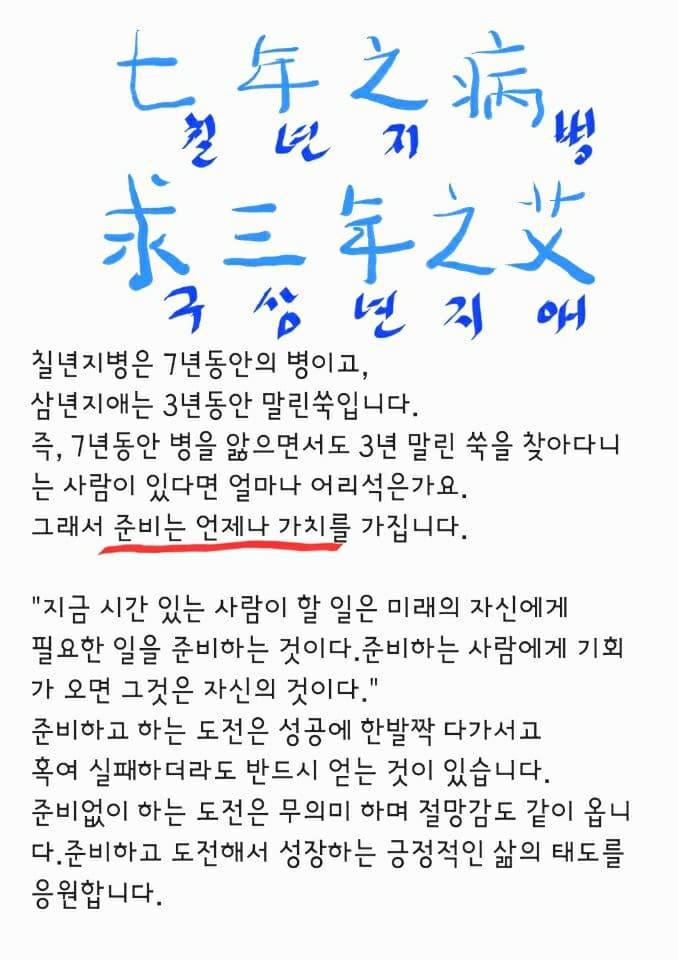 七年之病
칠년지병
求三年之艾
구삼년지애
칠년지병은 7년동안의 병이고,
삼년지애는 3년동안 말린쑥입니다.
즉, 7년동안 병을 앓으면서도 3년 말린 쑥을 찾아다니
는 사람이 있다면 얼마나 어리석은가요.
그래서 준비는 언제나 가치를 가집니다.
"지금 시간 있는 사람이 할 일은 미래의 자신에게
필요한 일을 준비하는 것이다.준비하는 사람에게 기회
가 오면 그것은 자신의 것이다."
준비하고 하는 도전은 성공에 한발짝 다가서고
혹여 실패하더라도 반드시 얻는 것이 있습니다.
준비없이 하는 도전은 무의미 하며 절망감도 같이 옵니
다.준비하고 도전해서 성장하는 긍정적인 삶의 태도를
응원합니다.